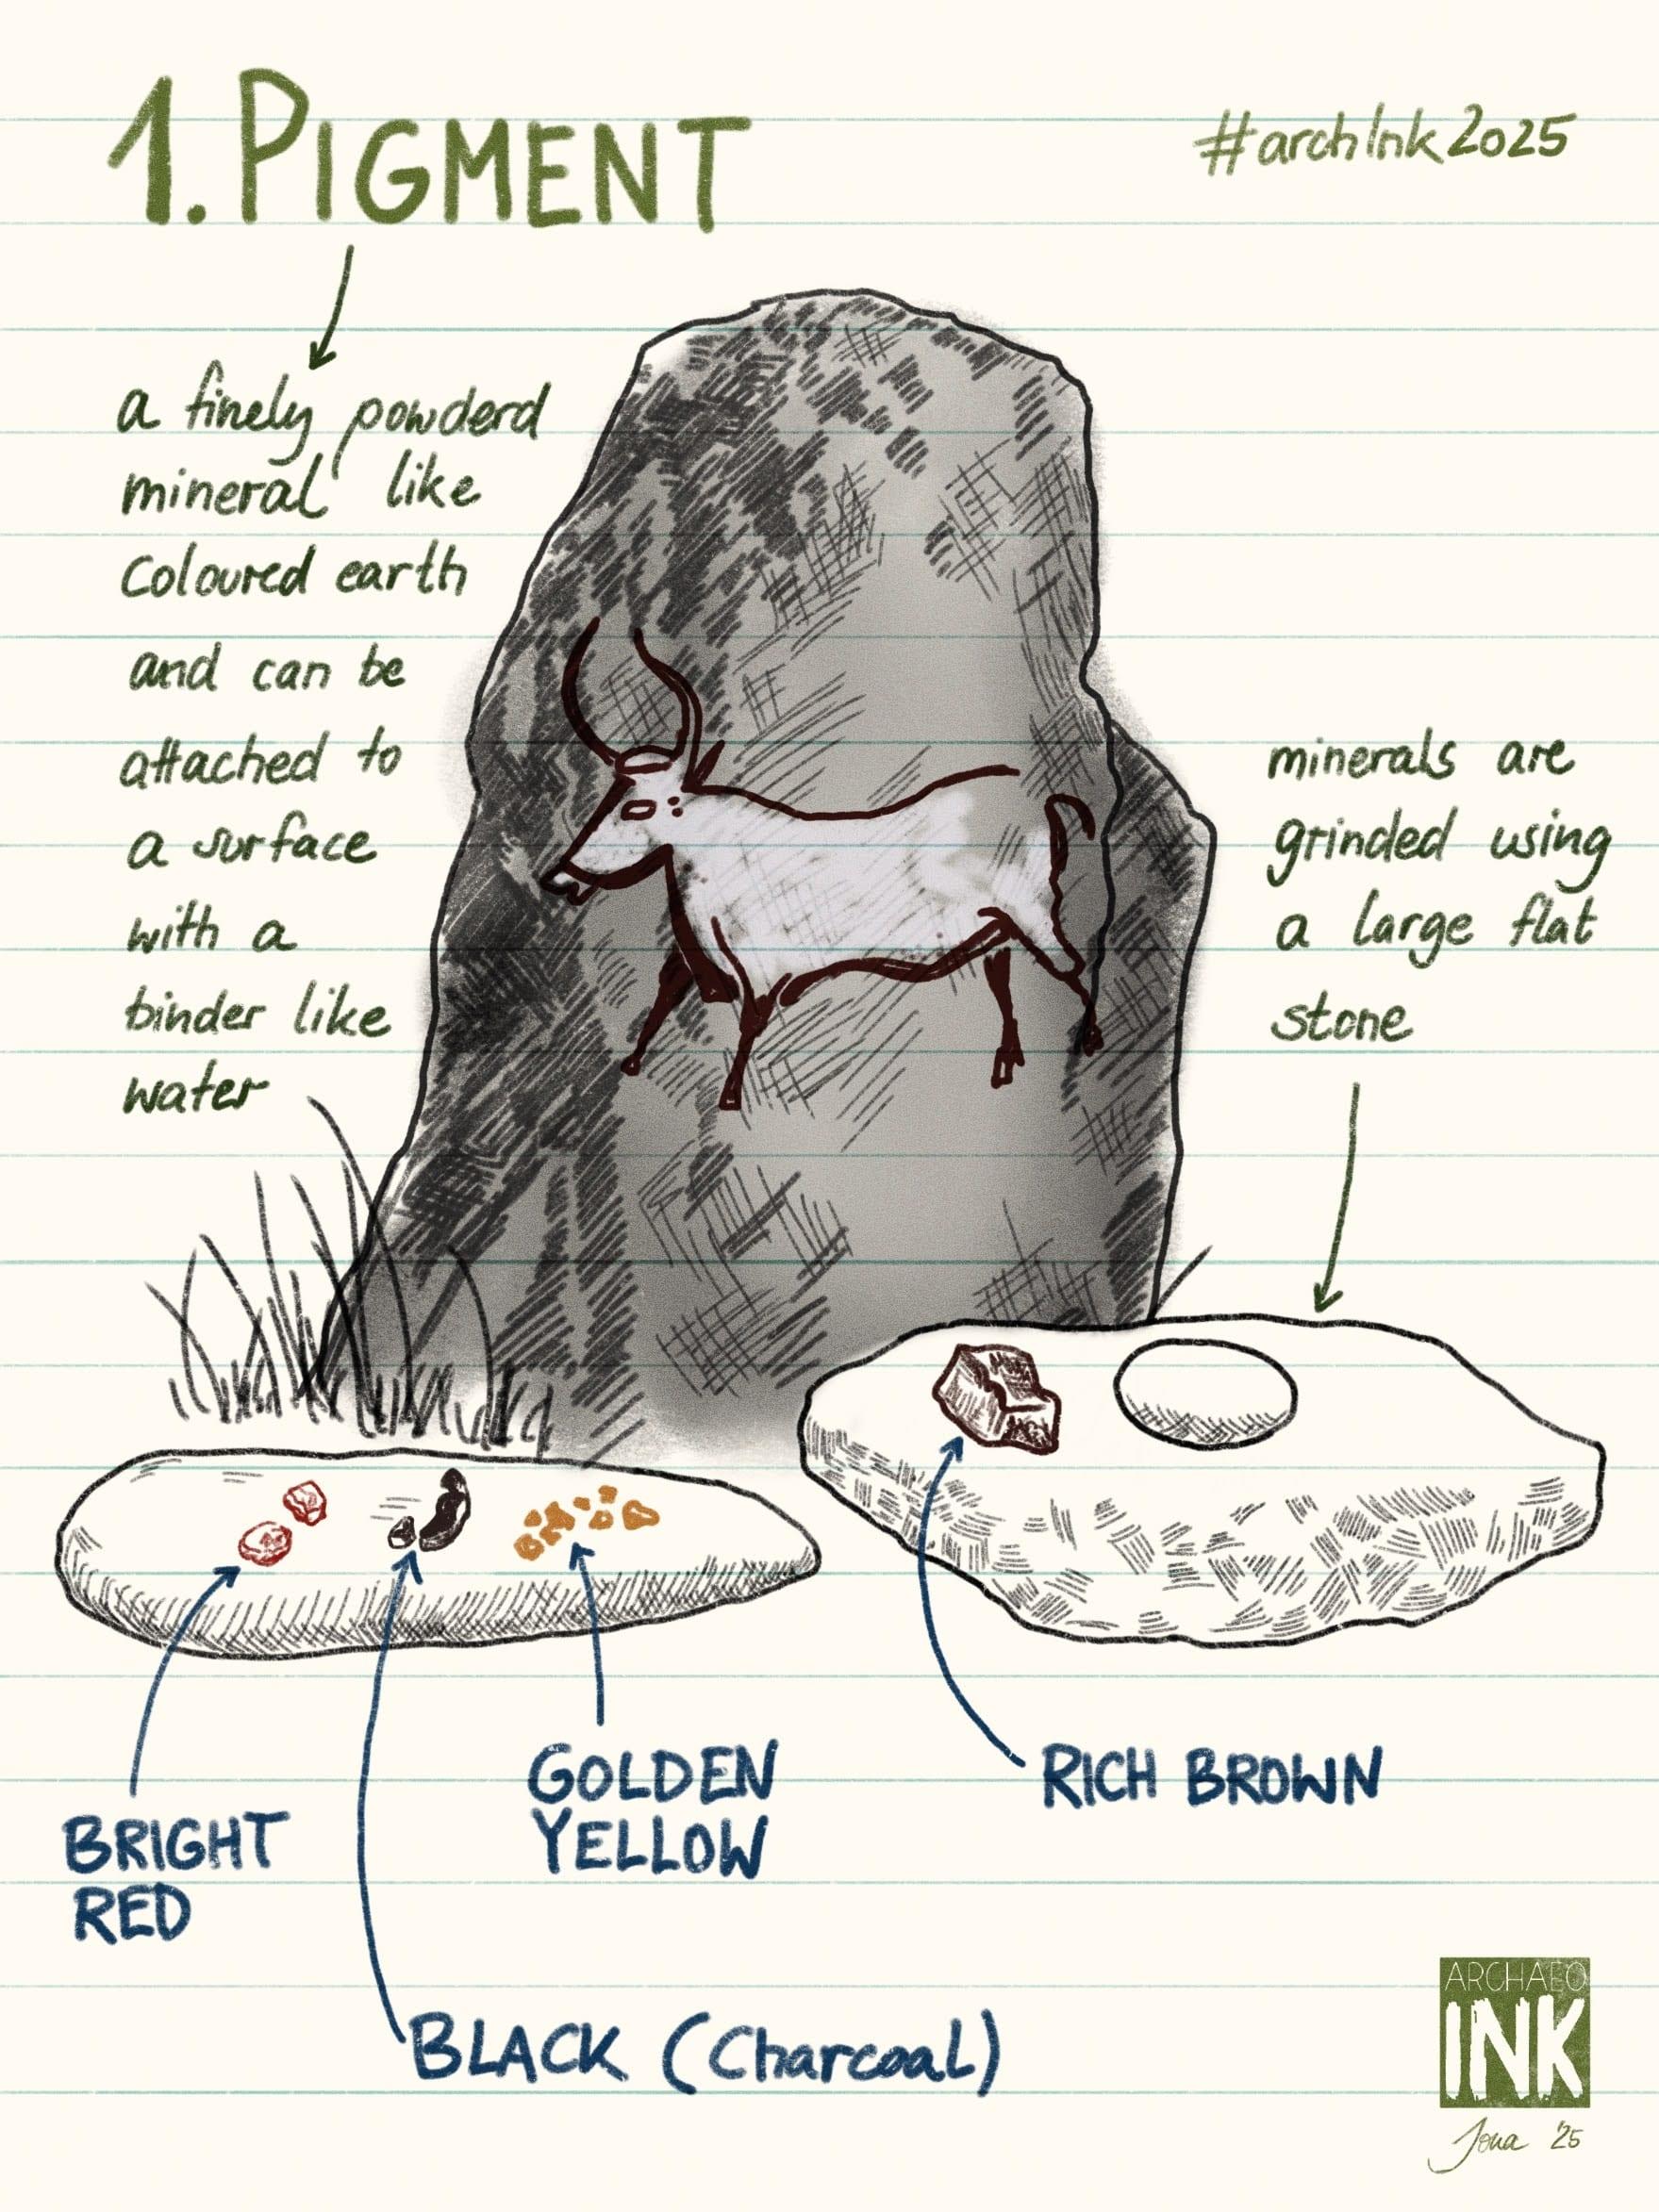 1. PIGMENT
#archInk2025
a finely powderd
mineral like
coloured earth
and can be
attached to
a surface
with a
binder like
water
minerals are
grinded using
a large flat
stone
BRIGHT
RED
GOLDEN
YELLOW
RICH BROWN
BLACK (Charcoal)
ARCHAEO
INK
Jona '25